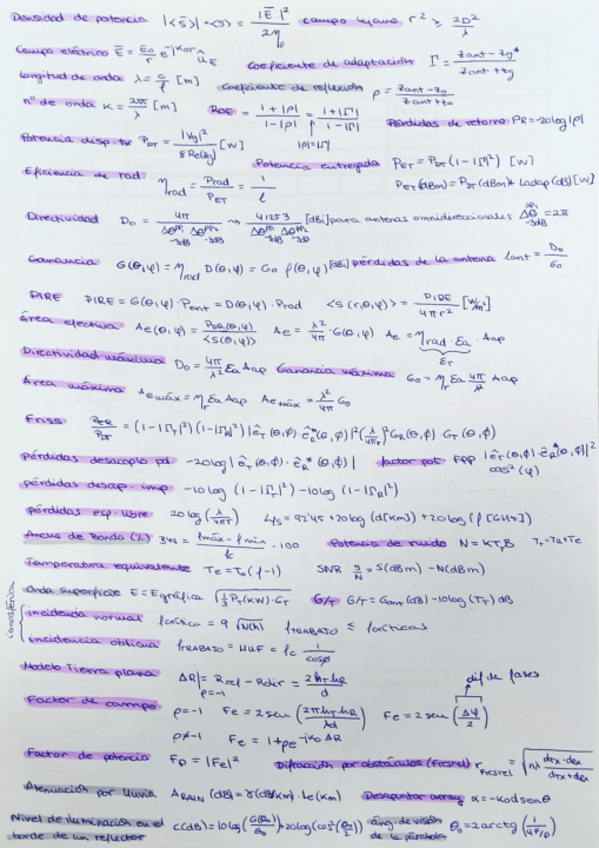 Densidad de potencia |<s̄>| = <s> = |Ē|²/2η₀ campo lejano r² ≥ 2D²/λ
Campo eléctrico Ē = (Ē₀/r) e^(-jk₀r) û_E Coeficiente de adaptación Γ = (Zant - Zg*)/(Zant + Zg)
Longitud de onda λ = c/f [m] Coeficiente de reflexión ρ = (Zant - Z₀)/(Zant + Z₀)
nº de onda K = 2π/λ [m] ROE = (1+|ρ|)/(1-|ρ|) = (1+|Γ|)/(1-|Γ|) Pérdidas de retorno PR = -20log|ρ|
|ρ|=|Γ|
Potencia disp. tx P_DT = |Vg|²/8Re(Zg) [W] Potencia entregada P_ET = P_DT (1-|Γ|²) [W]
Eficiencia de rad. η_rad = Prad/P_ET = 1/l P_ET (dBm) = P_DT (dBm) + Ladap (dB) [W]
Directividad D₀ = 4π/(Δθ-3dB Δθ-3dB) ~ 41253/(Δθ-3dB Δθ-3dB) [dBi] para antenas omnidireccionales Δθ-3dB = 2π
Ganancia G(θ,φ) = η_rad D(θ,φ) = G₀ f(θ,φ) [dBi] pérdidas de la antena lant = D₀/G₀
PIRE PIRE = G(θ,φ)·Pent = D(θ,φ)·Prad <s(r,θ,φ)> = PIRE/4πr² [W/m²]
Área efectiva Ae(θ,φ) = P_DR(θ,φ)/<s(θ,φ)> Ae = (λ²/4π)·G(θ,φ) Ae = η_rad·εa·Aap
ε_T
Directividad máxima D₀ = (4π/λ²) εa Aap Ganancia máxima G₀ = η_r εa (4π/λ²) Aap
Área máxima Aemáx = η_r εa Aap Aemáx = (λ²/4π) G₀
Friss P_ER/P_DT = (1-|Γ_T|²)(1-|Γ_R|²)|ê_T(θ,φ)·ê_R*(θ,φ)|² (λ/4πr)² G_R(θ,φ)·G_T(θ,φ)
pérdidas desacoplo pol -20log|ê_T(θ,φ)·ê_R*(θ,φ)| factor pol FPP |ê_T(θ,φ)·ê_R*(θ,φ)|²
cos²(φ)
pérdidas desap. imp -10log (1-|Γ_T|²) -10log (1-|Γ_R|²)
pérdidas esp. libre 20log(λ/4πr) Lfs = 92'45 + 20log(d[Km]) + 20log(f[GHz])
Ancho de Banda (%) BW = (fmáx - fmin)/f · 100 Potencia de ruido N = KT₀B T_T = Ta + Te
Temperatura equivalente Te = T₀(f-1) SNR S/N = S(dBm) - N(dBm)
Onda superficie E = Egráfica √(⅓ P_T(KW)·G_T) G/T G/T = Gant (dB) - 10log(T_T) dB
ionosférica
incidencia normal fcrítica = 9 √N(h) fTRABAJO ≤ fcríticas
incidencia oblicua fTRABAJO = MUF = fc 1/cosφ
Modelo Tierra plana ΔR|ρ=-1 = Rref - Rdir = 2h_T h_R/d
dif de fases
Factor de campo ρ=-1 Fe = 2sen(2πh_T h_R/λd) Fe = 2sen(Δφ/2)
ρ≠-1 Fe = 1+ρe^(-jk₀ΔR)
Factor de potencia Fp = |Fe|² Difracción por obstáculos (Fresnel) r_Fresnel = √(nλ (dtx·drx)/(dtx+drx))
Atenuación por lluvia A_RAIN (dB) = γ(dB/km)·Le(km) Desapuntar array α = -k₀d senθ
Nivel de iluminación en el borde de un reflector C(dB) = 10log(G(θ₀)/G₀) + 20log(cos²(θ₀/2)) áng. de visión de la parábola θ₀ = 2arctg(1/(4F/D))